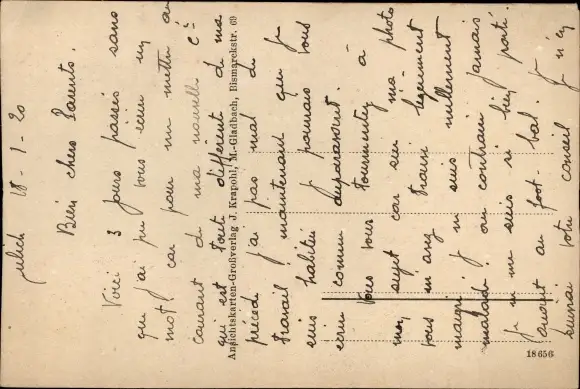 Julich 18 - 1 - 20
Bien chers Parents.
Voici 3 jours passés sans
que j'ai pu vous écrire un
mot. car pour me mettre au
courant de ma nouvelle Cie
qui est tout différent de ma
précéd j'ai pas mal de
travail. maintenant que je
suis habitué je pourrais vous
écrire comme auparavant.
Vous vous tourmentez à
mon sujet car sur ma photo
vous
maigri je ne suis nullement
malade. au contraire jamais
je ne me suis si bien porté.
quant au foot-bal. je n'en
suivrai votre conseil
Ansichtskarten-Großverlag J. Krapohl, M.-Gladbach, Bismarckstr. (6)
18656